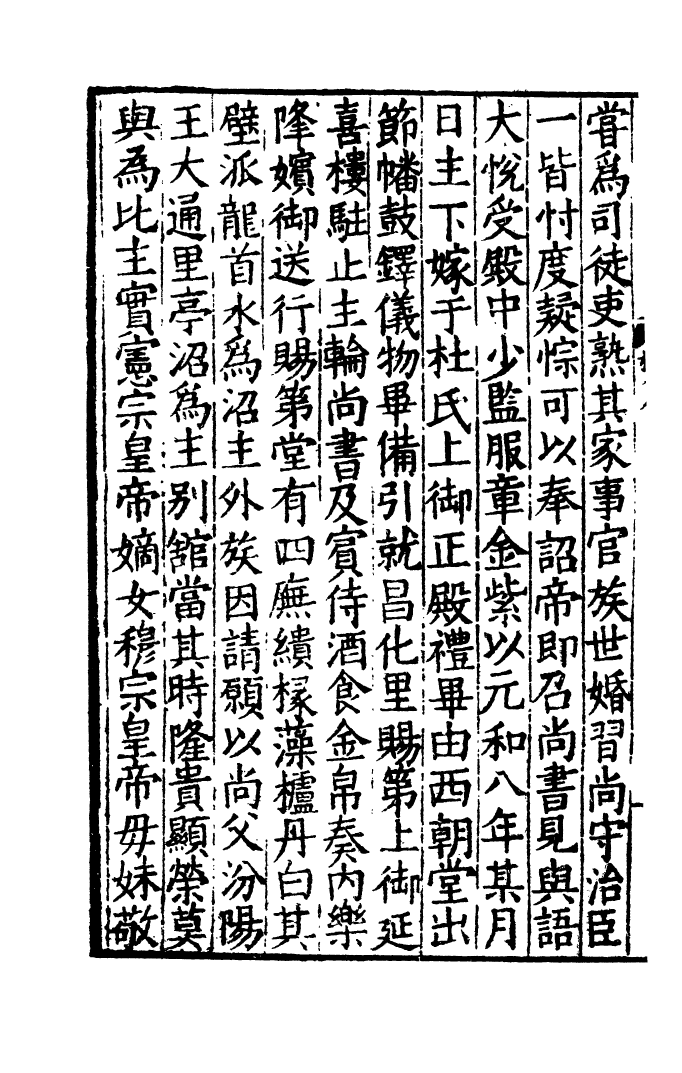 嘗爲司徒吏熟其家事官族世婚習尚守治臣
一皆忖度疑悰可以奉詔帝即召尚書見與語
大悅受殿中少監服章金紫以元和八年某月
日主下嫁于杜氏上御正殿禮畢由西朝堂出
節幡鼓鐸儀物畢備引就昌化里賜第上御延
喜樓駐止主輪尚書及賓侍酒食金帛奏內樂
降嬪御送行賜第堂有四廡繢椽藻櫨丹白其
壁派龍首水爲沼主外族因請願以尚父汾陽
王大通里亭沼爲主別館當其時隆貴顯榮莫
與為比主實憲宗皇帝嫡女穆宗皇帝毋妹敬